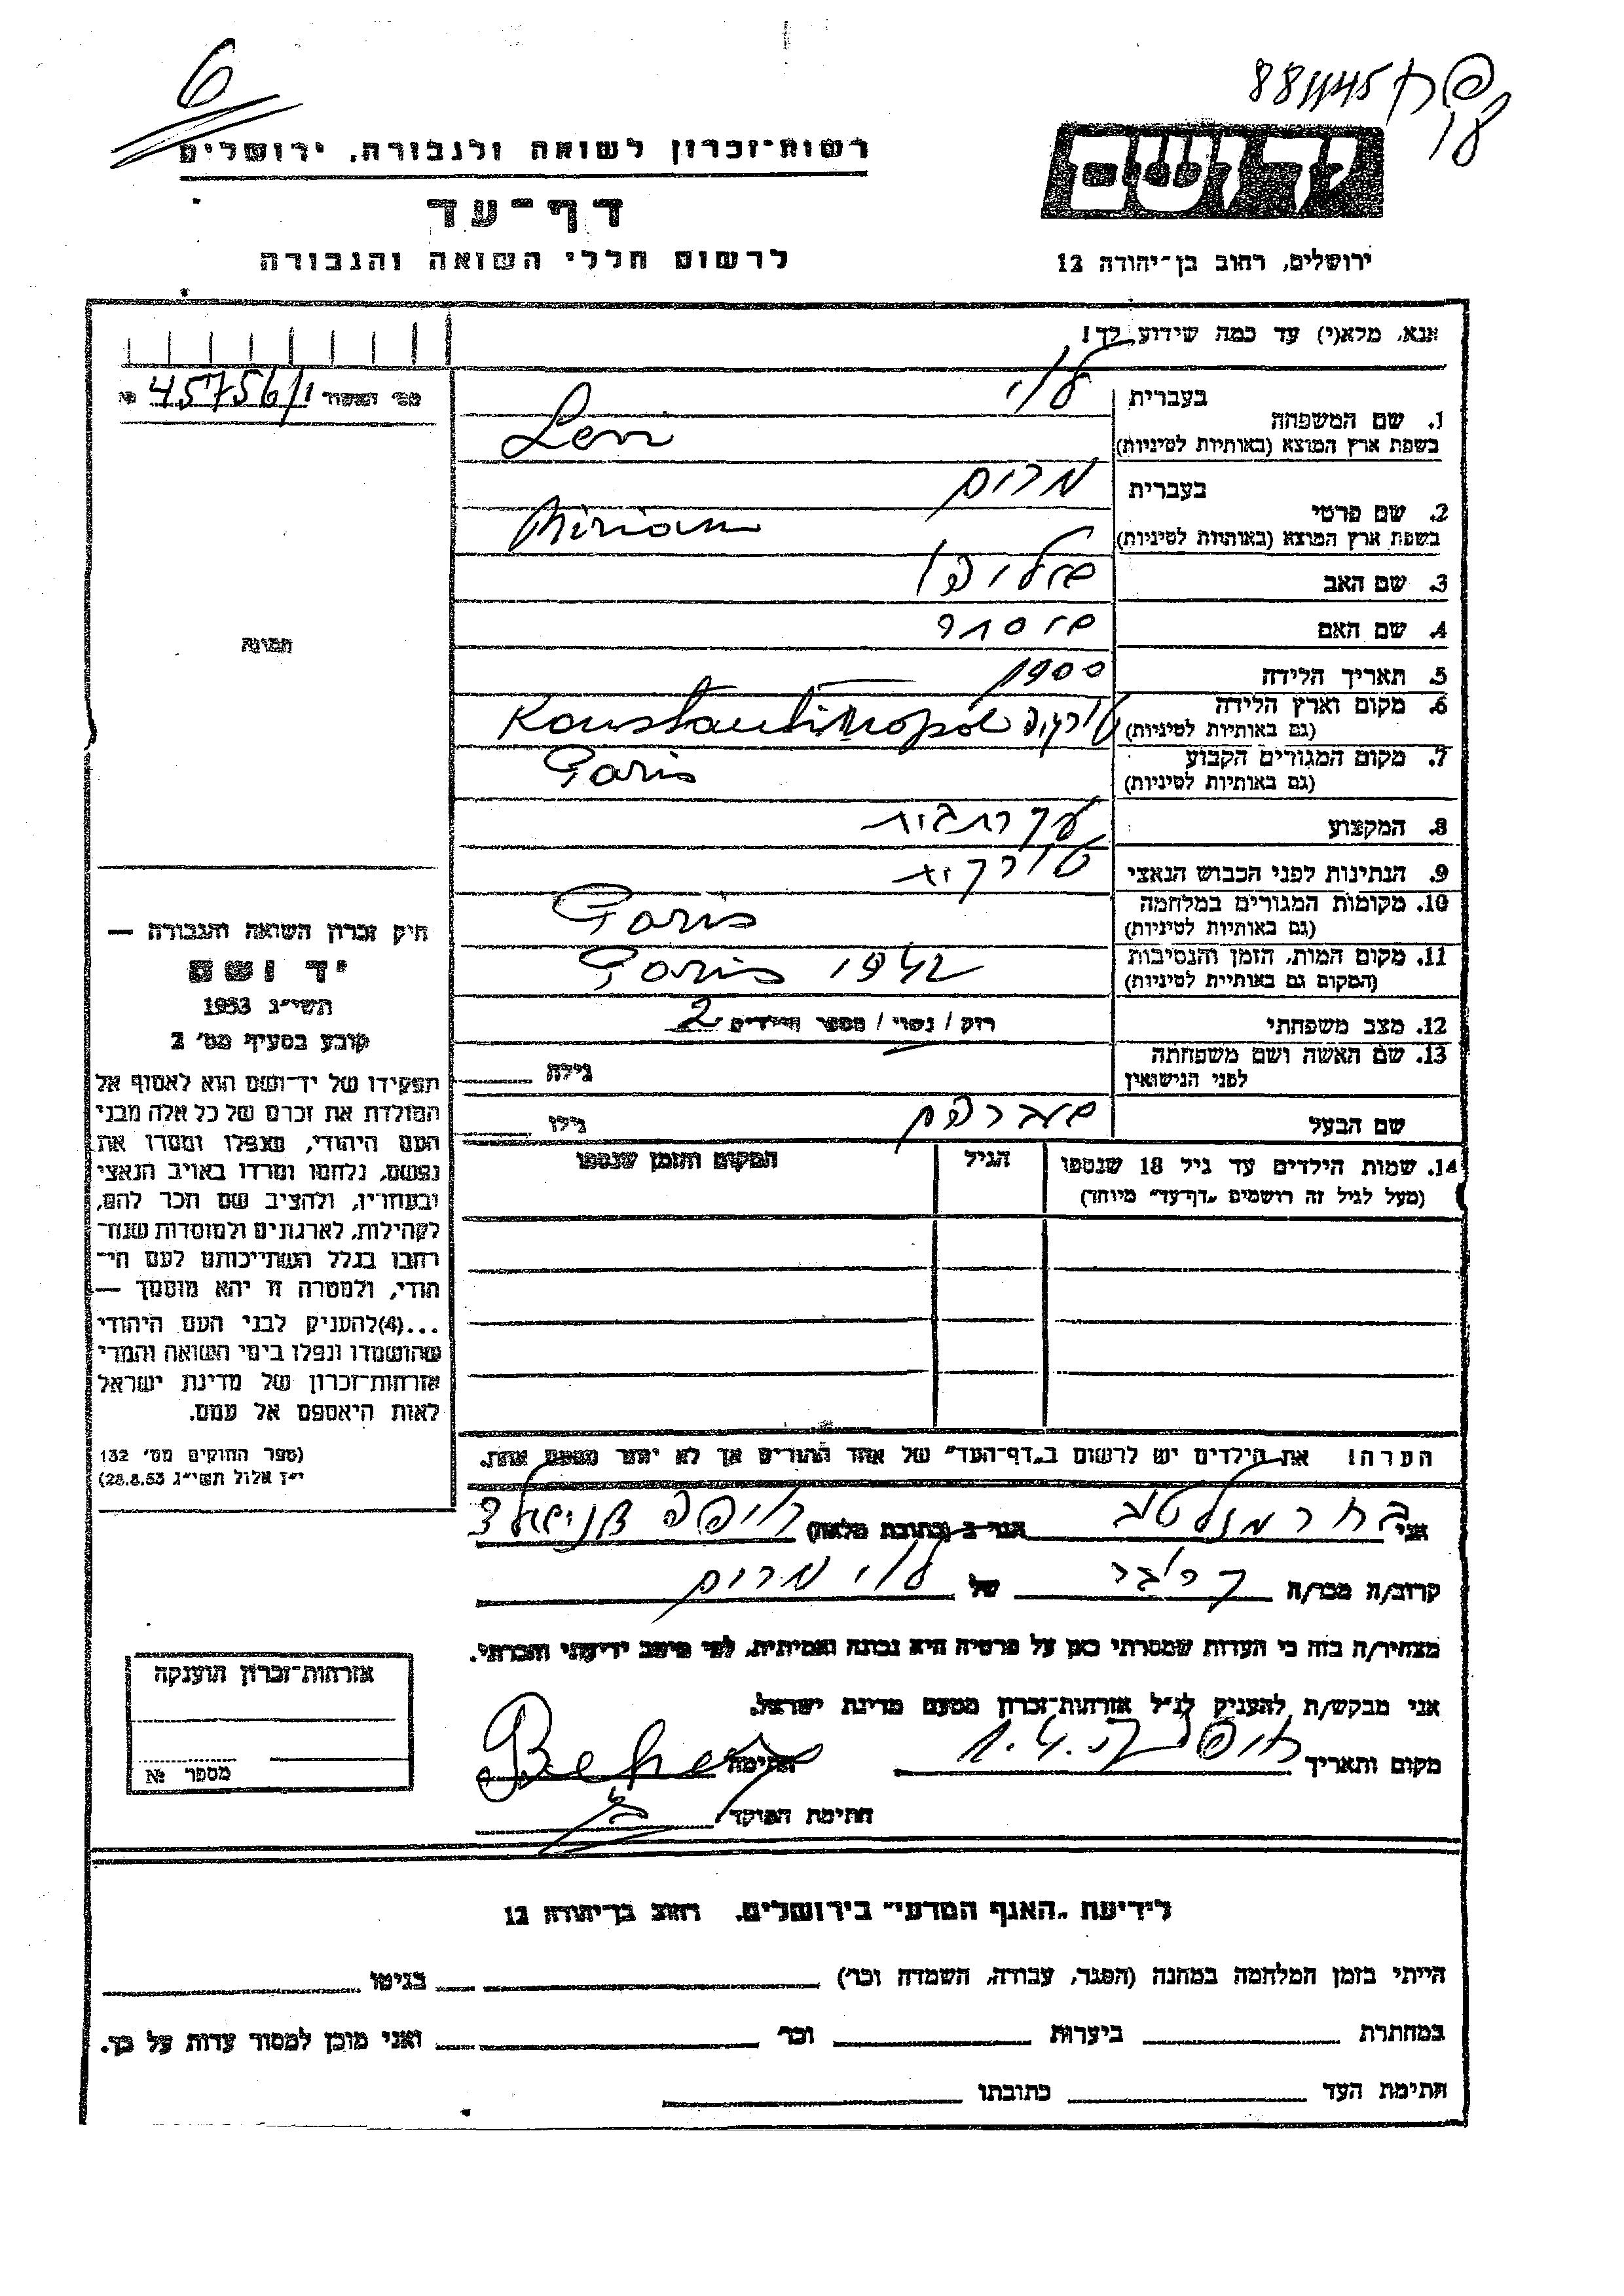 6
רשות-זכרון לשואה ולגבורה, ירושלים
דף-עד
לרשום חללי השואה והגבורה
יד ושם
ירושלים, רחוב בן-יהודה 12
אנא, מלא(י) עד כמה שידוע לך!
מס' האשוד 45756/1 №
תמונה
בעברית לוי
1. שם המשפחה
בשפת ארץ המוצא (באותיות לטיניות) Levi
בעברית מרים
2. שם פרטי
בשפת ארץ המוצא (באותיות לטיניות) Miriam
3. שם האב
4. שם האם
5. תאריך הלידה 1900
6. מקום וארץ הלידה
(גם באותיות לטיניות) טורקיה Konstantinopol
7. מקום המגורים הקבוע Paris
(גם באותיות לטיניות)
8. המקצוע עקרת בית
9. הנתינות לפני הכבוש הנאצי טורקית
10. מקומות המגורים במלחמה Paris
(גם באותיות לטיניות)
11. מקום המות, הזמן והנסיבות Paris 1942
(המקום גם באותיות לטיניות)
12. מצב משפחתי רוק / נשוי / מספר הילדים 2
13. שם האשה ושם משפחתה
לפני הנישואין
גילה
שם הבעל אברהם גילו
14. שמות הילדים עד גיל 18 שנספו הגיל המקום והזמן שנספו
(מעל לגיל זה רושמים "דף-עד" מיוחד)
הערה! את הילדים יש לרשום ב"דף-העד" של אחד ההורים אך לא יותר מפעם אחת.
חיק זכרון השואה והגבורה —
יד ושם
תשי"ג 1953
קובע בסעיף מס' 2
תפקידו של יד-ושם הוא לאסוף אל
המולדת את זכרם של כל אלה מבני
העם היהודי, שנפלו ומסרו את
נפשם, נלחמו ומרדו באויב הנאצי
ובעוזריו, ולהציב שם וזכר להם,
לקהילות, לארגונים ולמוסדות שנח-
רבו בגלל השתייכותם לעם הי-
הודי, ולמטרה זו יהא מוסמך —
...(4)להעניק לבני העם היהודי
שהושמדו ונפלו בימי השואה והמרי
אזרחות-זכרון של מדינת ישראל
לאות היאספם אל עמם.
(ספר החוקים מס' 132
י"ז אלול תשי"ג 28.8.53)
אני בכר הגר ב (כתובת מלאה) חיפה
קרוב/ה מכר/ה של לוי מרים
מצהיר/ה בזה כי העדות שמסרתי כאן על פרטיה היא נכונה ואמיתית, לפי מיטב ידיעתי והכרתי.
אני מבקש/ת להעניק לנ"ל אזרחות-זכרון מטעם מדינת ישראל.
מקום ותאריך חיפה 1.4. חתימה Behar
חתימת הפוקד
אזרחות-זכרון הוענקה
מספר №
לידיעת "האגף המדעי" בירושלים. רחוב בן-יהודה 12
הייתי בזמן המלחמה במחנה (הסגר, עבודה, השמדה וכו') בגיטו
במחתרת ביערות וכו' ואני מוכן למסור עדות על כך.
חתימת העד כתובתו